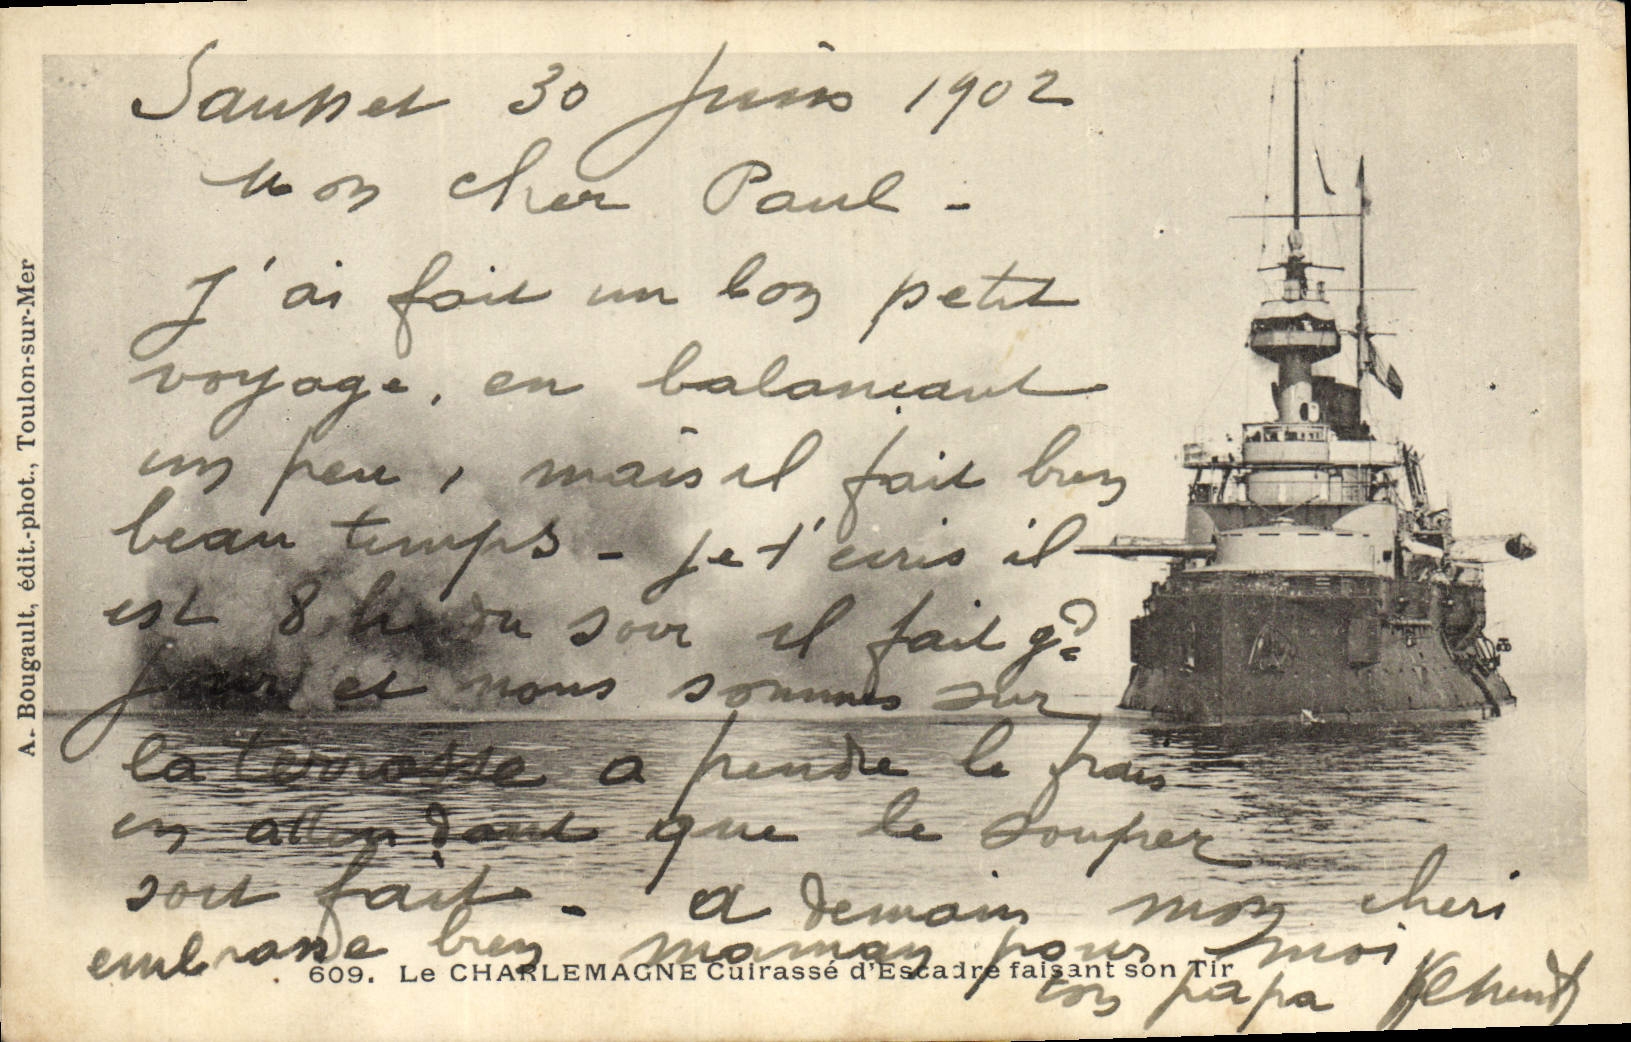 Sausset 30 Juin 1902
Mon cher Paul -
J'ai fait un bon petit
voyage, en balancant
un peu, mais il fait bien
beau temps - je t'ecris il
est 8 h du soir il fait gd
jour et nous sommes sur
la terrasse a prendre le frais
en attendant que le souper
soit fait - a demain mon cheri
embrasse bien maman pour moi
ton papa
609. Le CHARLEMAGNE Cuirassé d'Escadre faisant son Tir
A. Bougault, édit.-phot., Toulon-sur-Mer